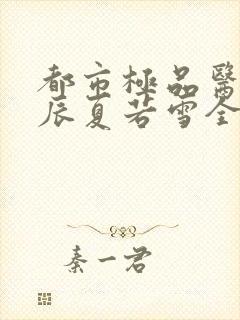 都市極品醫
辰夏若雪全
秦一君